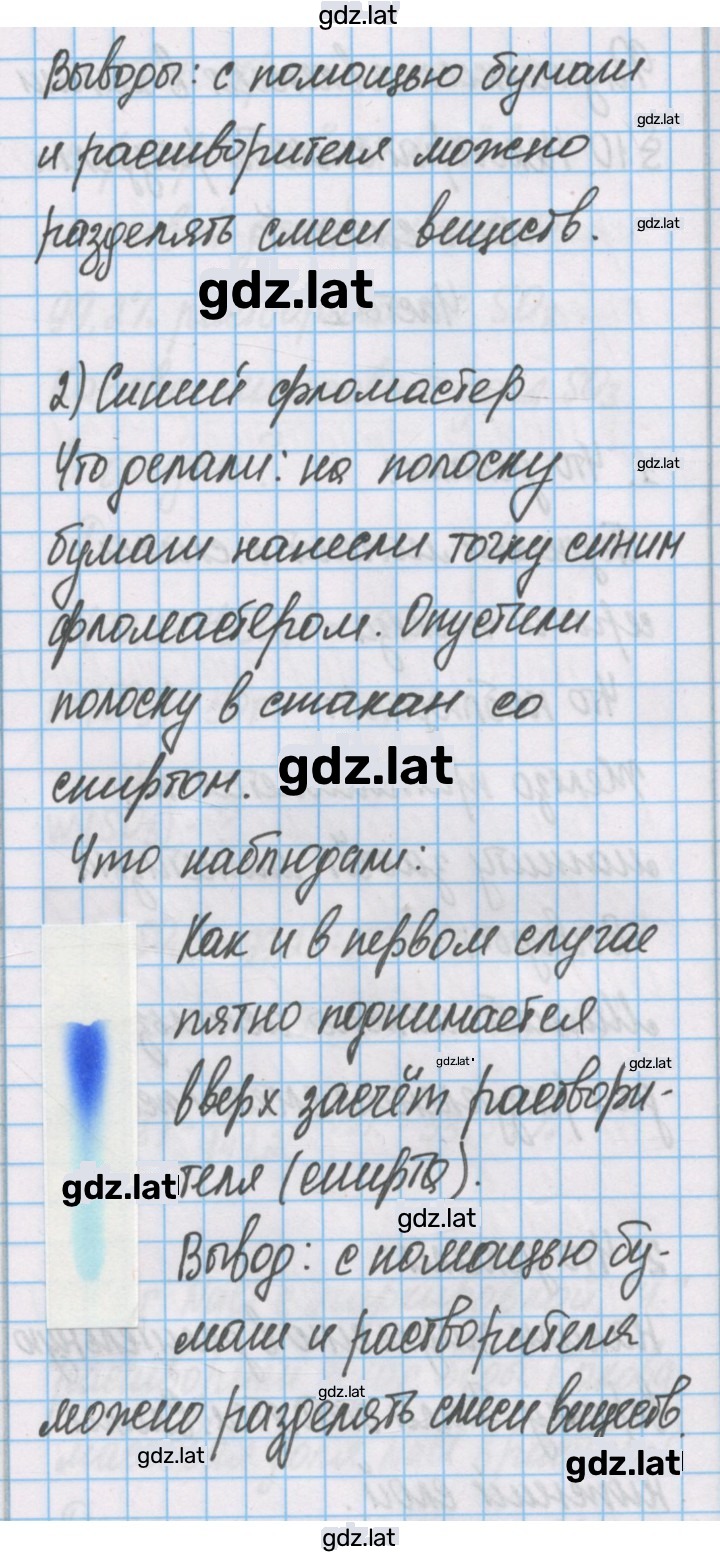 gdz.lat
Выводы: с помощью бумаги
gdz.lat
и растворителя можно
gdz.lat
разделять смеси веществ.
gdz.lat
2) Синий фломастер
Что делали: на полоску
gdz.lat
бумаги нанесли точку синим
фломастером. Опустили
полоску в стакан со
gdz.lat
спиртом.
Что наблюдали:
Как и в первом случае
пятно поднимается
gdz.lat
gdz.lat
вверх засчёт раствори-
gdz.lat
теля (спирта).
gdz.lat
Вывод: с помощью бу-
маги и растворителя
gdz.lat
можно разделять смеси веществ.
gdz.lat
gdz.lat
gdz.lat